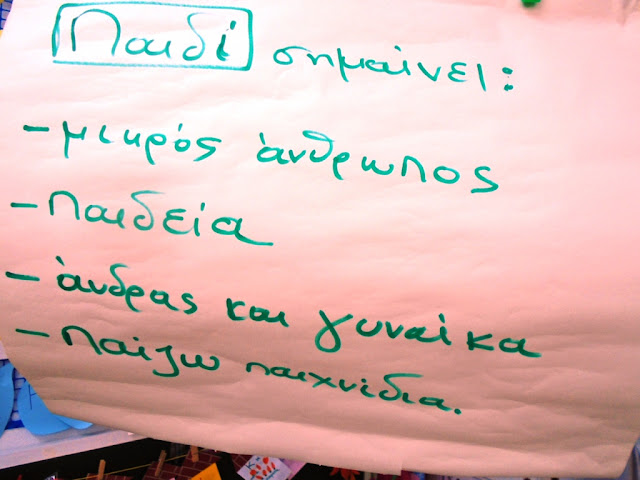 Παιδί σημαίνει:
- μικρός άνθρωπος
- Παιδεία
- άνδρας και γυναίκα
- Παίζω παιχνίδια.